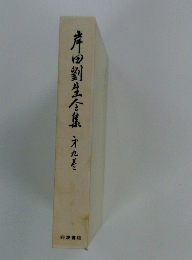 岸田劉生全集
第九巻
岩波書店